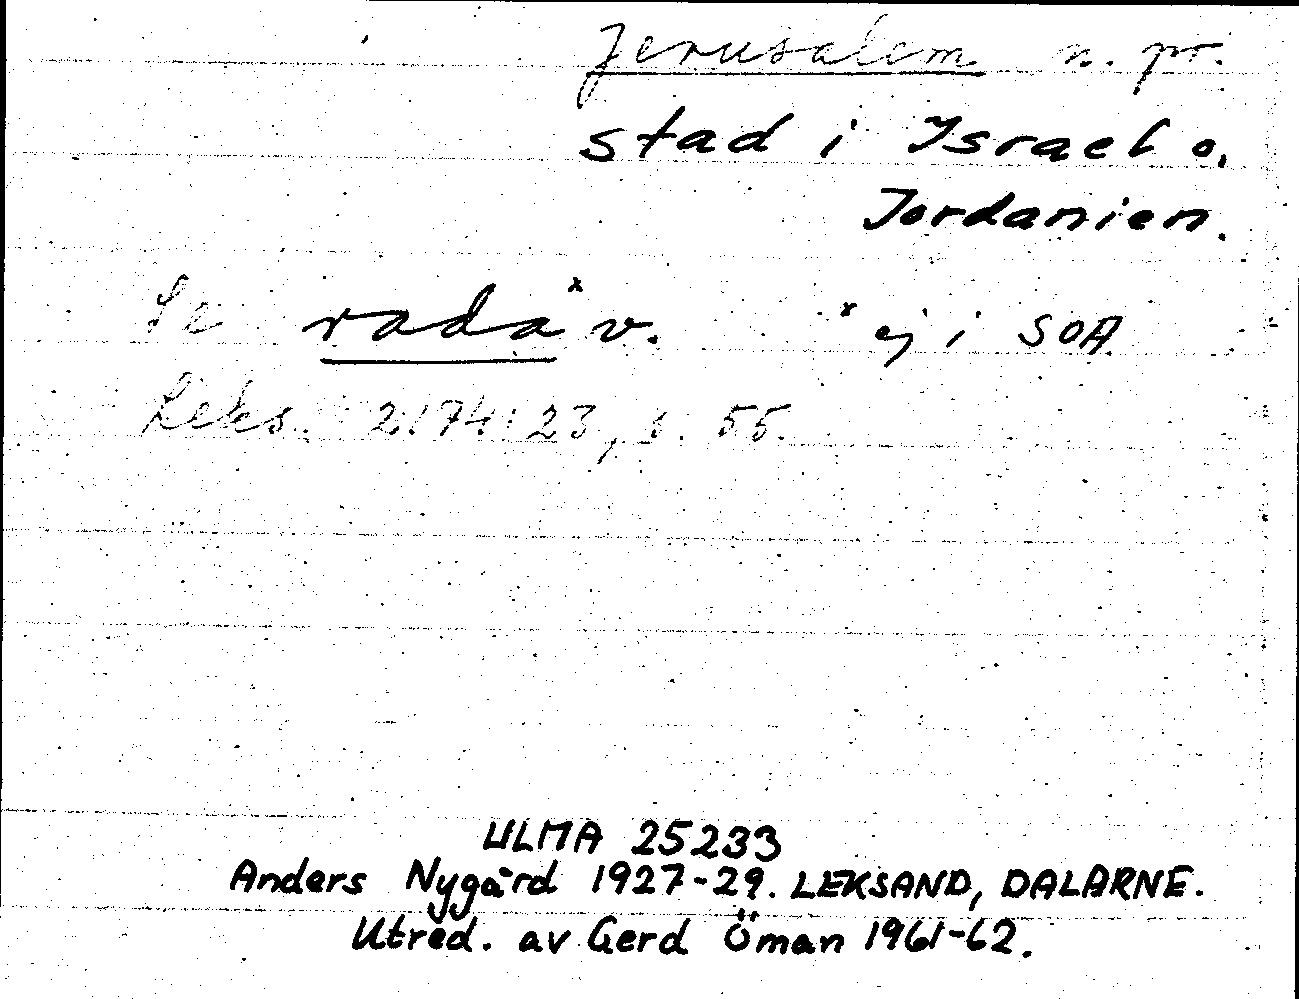 Jerusalem n. pr.
stad i Israel o.
Jordanien.
Se rada x v. x ej i SOA
Leks. 2174:23, s. 55.
ULMA 25233
Anders Nygård 1927-29. LEKSAND, DALARNE.
Utred. av Gerd Öman 1961-62.